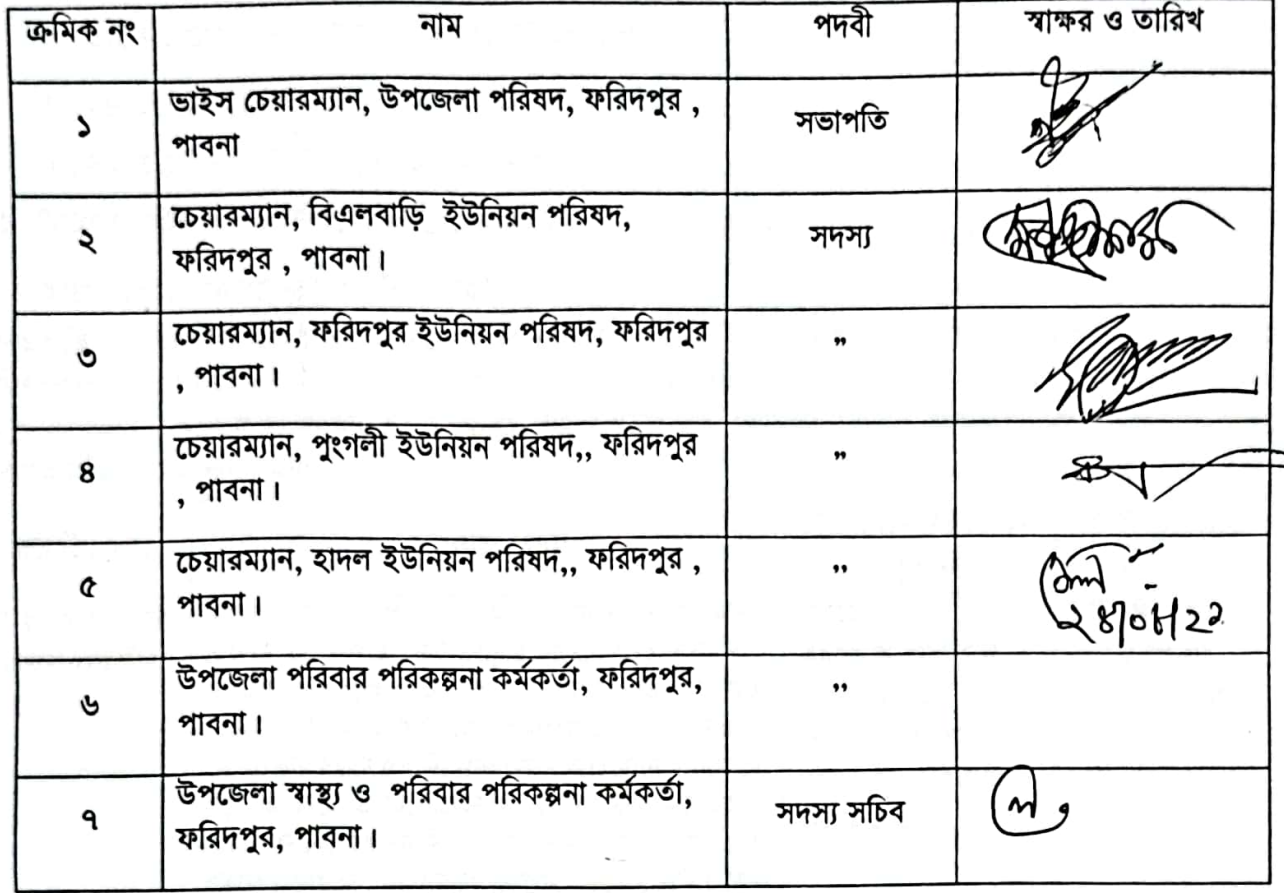 ক্রমিক নং নাম পদবী স্বাক্ষর ও তারিখ
১ ভাইস চেয়ারম্যান, উপজেলা পরিষদ, ফরিদপুর , সভাপতি
পাবনা
২ চেয়ারম্যান, বিএলবাড়ি ইউনিয়ন পরিষদ, সদস্য
ফরিদপুর , পাবনা।
৩ চেয়ারম্যান, ফরিদপুর ইউনিয়ন পরিষদ, ফরিদপুর ”
, পাবনা।
৪ চেয়ারম্যান, পুংগলী ইউনিয়ন পরিষদ,, ফরিদপুর ”
, পাবনা।
৫ চেয়ারম্যান, হাদল ইউনিয়ন পরিষদ,, ফরিদপুর , ”
পাবনা।
৬ উপজেলা পরিবার পরিকল্পনা কর্মকর্তা, ফরিদপুর, ”
পাবনা।
৭ উপজেলা স্বাস্থ্য ও পরিবার পরিকল্পনা কর্মকর্তা, সদস্য সচিব
ফরিদপুর, পাবনা।